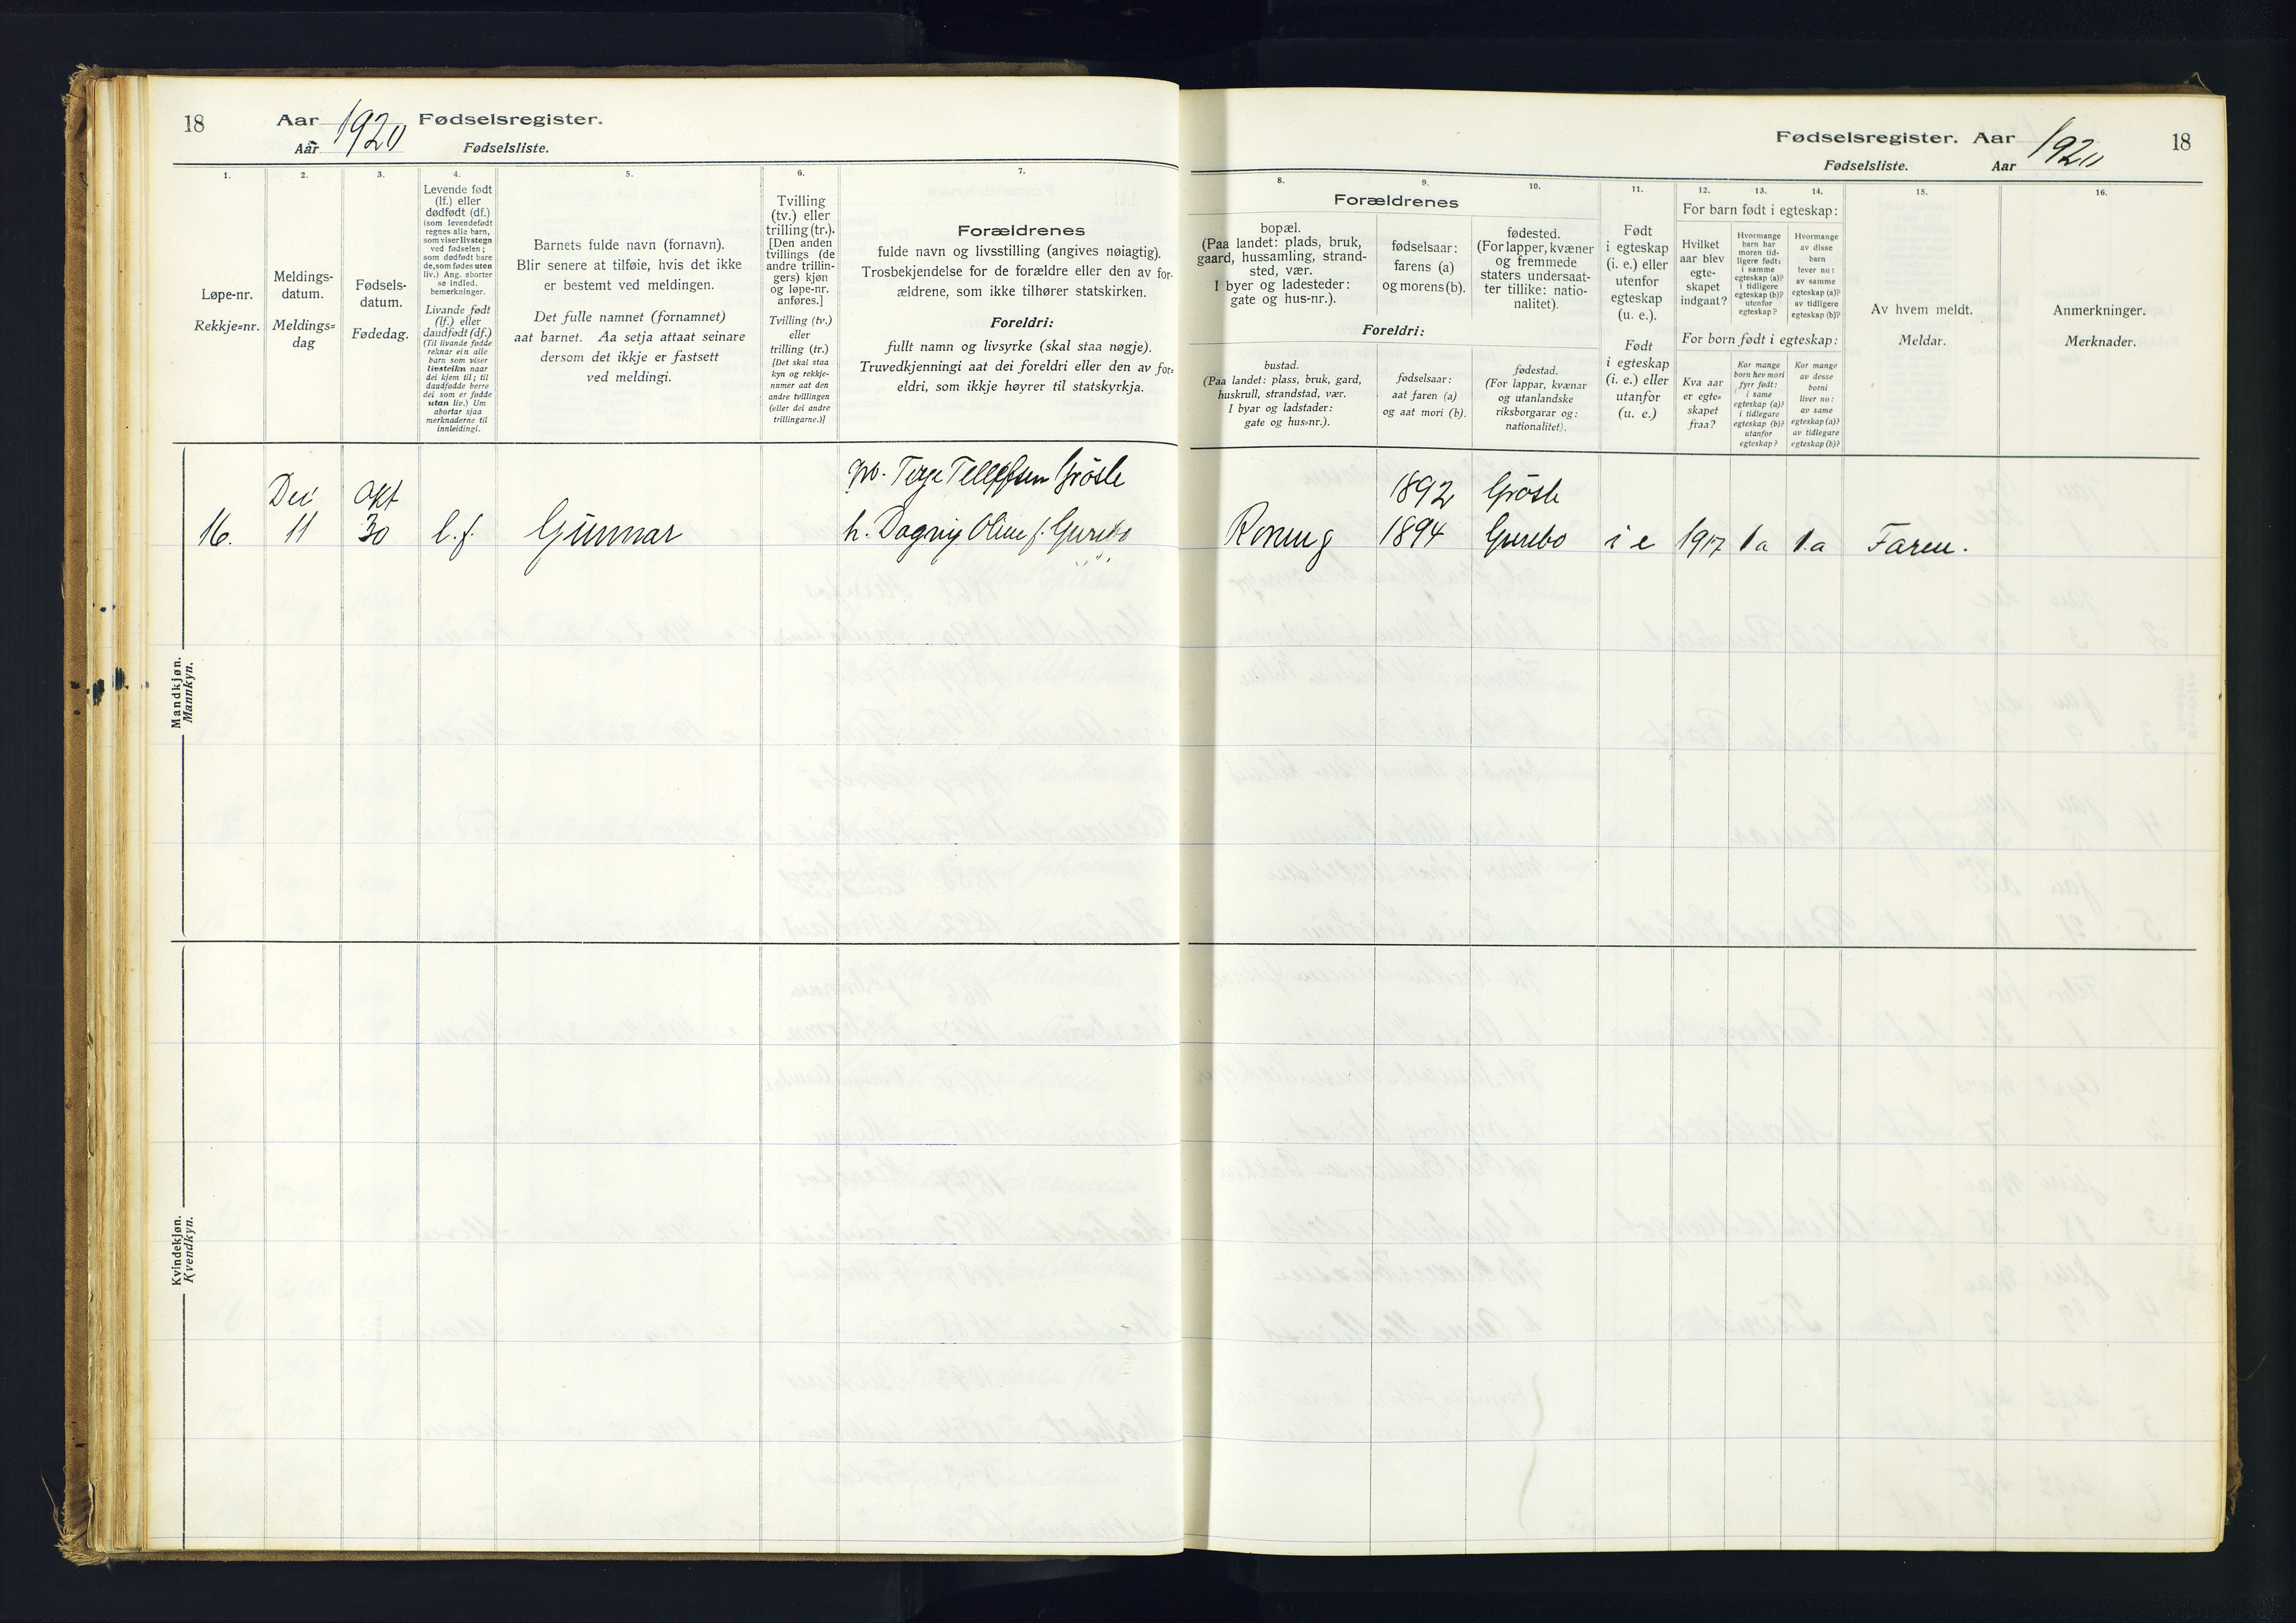 18
Aar 1920 Fødselsregister.
Aar Fødselsliste.
1.
2.
3.
4.
5.
6.
7.
Løpe-nr.
Rekkje=nr.
Meldings-
datum.
Meldings=
dag
Fødsels-
datum.
Fødedag.
Levende født
(lf.) eller
dødfødt (df.)
(som levendefødt
regnes alle barn,
som viser livstegn
ved fødselen;
som dødfødt bare
de, som fødes uten
liv.) Ang. aborter
se indled.
bemerkninger.
Livande født
(lf.) eller
daudfødt (df.)
(Til livande fødde
reknar ein alle
barn som viser
livsteikn naar
dei kjem til; til
daudfødde berre
dei som er fødde
utan liv.) Um
abortar sjaa
merknaderne til
innleidingi.
Barnets fulde navn (fornavn).
Blir senere at tilføie, hvis det ikke
er bestemt ved meldingen.
Det fulle namnet (fornamnet)
aat barnet. Aa setja attaat seinare
dersom det ikkje er fastsett
ved meldingi.
Tvilling
(tv.) eller
trilling (tr.).
[Den anden
tvillings (de
andre trillin-
gers) kjøn
og løpe-nr.
anføres.]
Tvilling (tv.)
eller
trilling (tr.)
[Det skal staa
kyn og rekkje-
numer aat den
andre tvillingen
(eller dei andre
trillingarne.)]
Forældrenes
fulde navn og livsstilling (angives nøiagtig).
Trosbekjendelse for de forældre eller den av for-
ældrene, som ikke tilhører statskirken.
Foreldri:
fullt namn og livsyrke (skal staa nøgje).
Truvedkjenningi aat dei foreldri eller den av for=
eldri, som ikkje høyrer til statskyrkja.
Mandkjøn.
Mannkyn.
Terje Tellefsen Grösle
Des Okt
16. 11 30 l.f. Gunnar h. Dagny Oline f. Gurebo
Kvindekjøn.
Kvendkyn.
Fødselsregister. Aar 1920 18
Fødselsliste. Aar
8.
9.
10.
11.
12.
13.
14.
15.
16.
Forældrenes
bopæl.
(Paa landet: plads, bruk,
gaard, hussamling, strand-
sted, vær.
I byer og ladesteder:
gate og hus-nr.).
fødselsaar:
farens (a)
og morens (b).
fødested.
(For lapper, kvæner
og fremmede
staters undersaat-
ter tillike: natio-
nalitet).
Foreldri:
bustad.
(Paa landet: plass, bruk, gard,
huskrull, strandstad, vær.
I byar og ladstader:
gate og hus=nr.).
fødselsaar:
aat faren (a)
og aat mori (b).
fødestad.
(For lappar, kvænar
og utanlandske
riksborgarar og:
nationalitet).
Født
i egteskap
(i. e.) eller
utenfor
egteskap
(u. e.).
Født
i egteskap
(i. e.) eller
utanfor
(u. e.)
For barn født i egteskap:
Hvilket
aar blev
egte-
skapet
indgaat?
Hvormange
barn har
moren tid-
ligere født:
i samme
egteskap (a)?
i tidligere
egteskap (b)?
utenfor
egteskap?
Hvormange
av disse
barn
lever nu:
av samme
egteskap (a)?
av tidligere
egteskap (b)?
For born født i egteskap:
Kva aar
er egte=
skapet
fraa?
Kor mange
born hev mori
fyrr født:
i same
egteskap (a)?
i tidlegare
egteskap (b)?
utanfor
egteskap?
Kor mange
av desse
borni
liver no:
av same
egteskap (a)?
av tidlegare
egteskap (b)?
Av hvem meldt.
Meldar.
Anmerkninger.
Merknader.
1892 Grösle
1894 Gurebo i e 1917 1 a 1 a Faren.